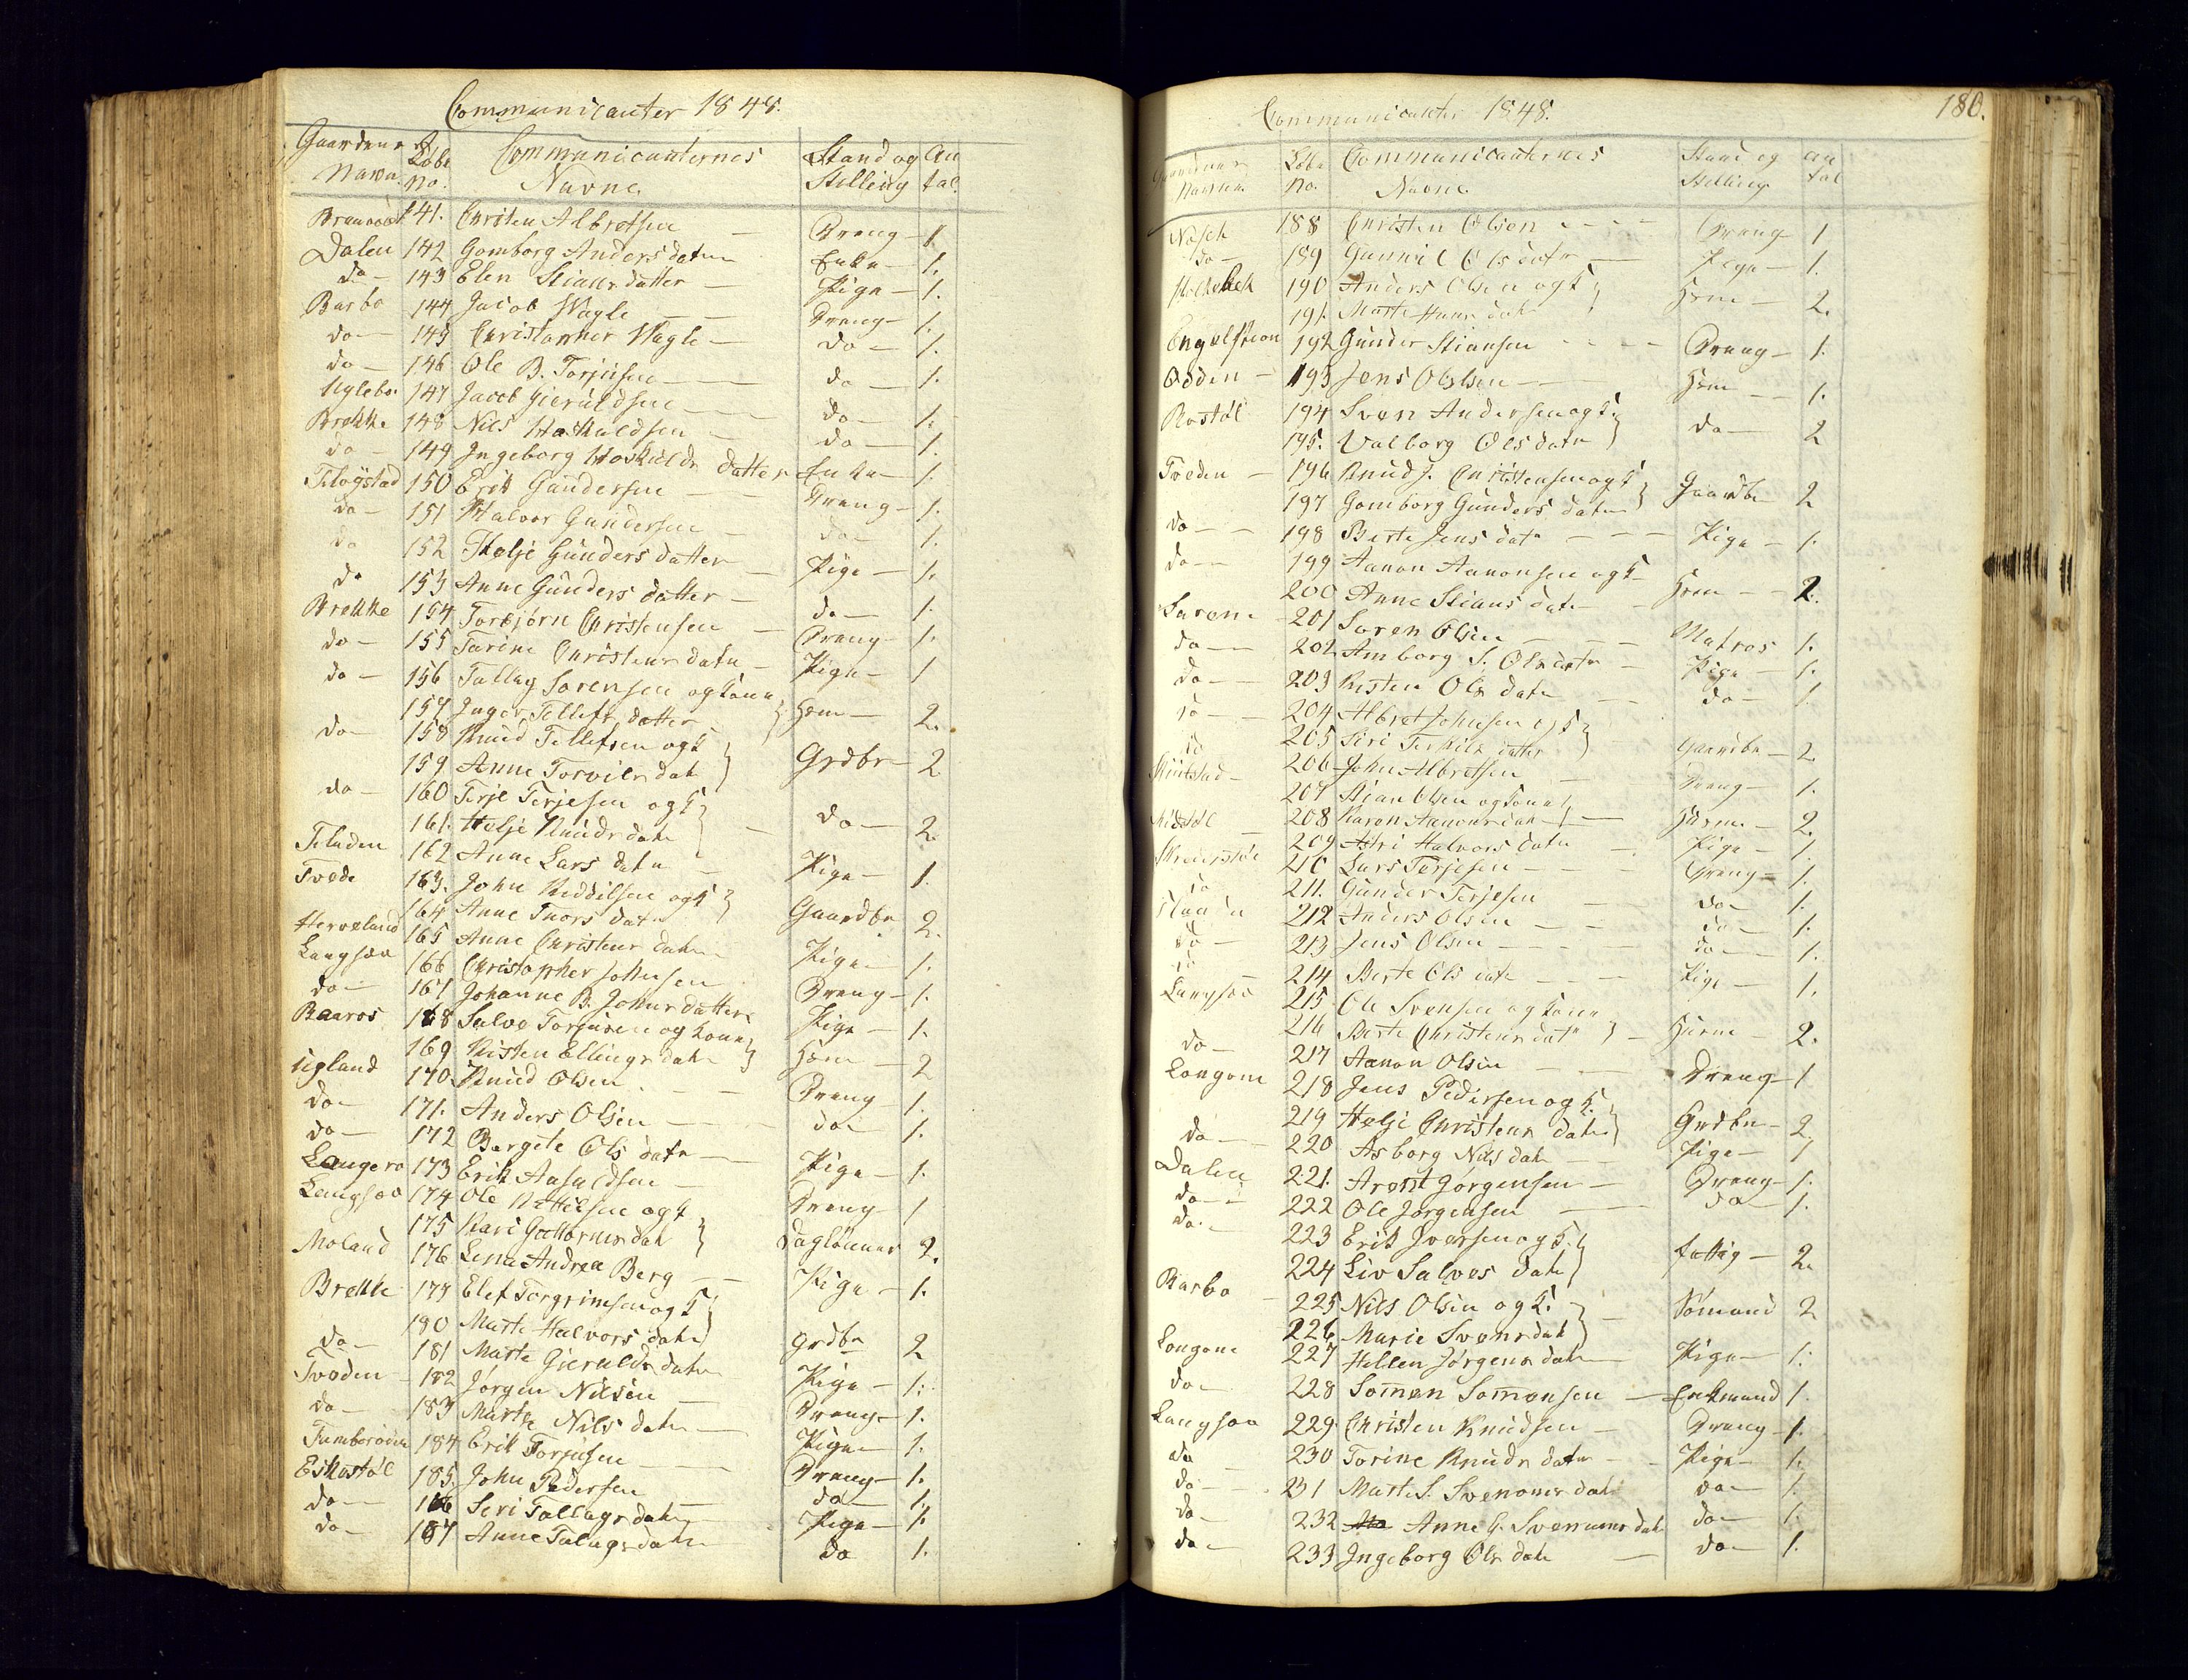 Communicanter 1848.
Gaardenes Navn. Løbe No. Communicanternes Navne. Stand og Stilling Antal.
141. Christen Albretsen — Dreng — 1.
Dalen 142 Gomborg Anders datter Enke — 1.
do — 143 Elen Stians datter — Pige — 1.
Barbo 144 Jacob Wagle — — Dreng — 1.
do — 145 Christopher Wagle — do — 1.
do — 146 Ole B. Torjusen — do — 1.
Uglebo 147 Jacob Gieruldsen — do — 1.
Brekke 148 Nils Haskuldsen — do — 1.
do — 149 Ingeborg Hoskulds datter Enke — 1.
Tiløystad 150 Erik Gundersen — Dreng — 1.
do — 151 Halvor Gundersen — do — 1.
do 152 Helje Gunders datter — Pige — 1.
do 153 Anne Gunders datter — do — 1.
Brekke 154 Torbjørn Christensen — Dreng — 1.
do — 155 Tarine Christens datr — Pige — 1
do — 156 Tallag Sorensen og kone
157 Inger Tellefs datter } Hsm — 2.
do — 158 Knud Tellefsen og k
159 Anne Torvils dat } Grdbr — 2
do — 160 Terje Terjesen og k
161. Helje Knuds datr } — do — 2.
162 Anne Lars datr — Pige — 1.
Tvede 163. John Kiddilsen og k
164 Anne Thors datr } Gaardbr 2.
Herveland 165 Anne Christens datr Pige — 1.
Langsæe 166 Christopher Johnsen Dreng — 1.
do — 167 Johanne B. Johns datter Pige — 1.
Baaros 168 Salve Torjusen og kone
169 Kisten Ellings datr } Hsm — 2
Ugland 170. Knud Olsen — — Dreng — 1.
do — 171. Anders Olsen — do — 1.
do — 172 Bergete Ols datr — Pige — 1.
Langero 173 Erik Aasuldsen — Dreng — 1
Langsæe 174 Ole Kittilsen og k
175 Kari Guttorms dat } Dagløнner 2.
Moland 176 Lena Andrea Berg — Pige — 1.
Brekke 179 Elef Torgrimsen og k
180 Marte Halvors datr } Grdbr 2
do — 181 Marte Gieralds datr Pige — 1.
Tveden — 182 Jørgen Nilsen — Dreng — 1.
do — 183 Marte Nils datr — Pige — 1.
184 Erik Torjusen — Dreng — 1.
Eskestøl 185. John Pedersen — do — 1.
do — 186 Siri Tallags datr — Pige — 1.
do — 187 Anne Talags datr do 1.
Communicanter 1848. 180.
Gaardenes Navne. Løbe No. Communicanternes Navne. Stand og Stilling Antal
188 Christen Olsen — — Dreng 1
do — 189 Gunnil Ols datr — Pige — 1.
190 Anders Olsen og k
191. Marte Hans datr } Hsm — 2.
192 Gunder Stiansen — — Dreng — 1.
Odden — 193 Jens Olsen — Hsm — 1.
Rostøl 194 Sven Andersen og k
195. Valborg Ols datr } do — 2
Tveden — 196 Knud J. Christensen og k
197 Gomborg Gunders datr } Gaardbr 2
do — 198 Berte Jens datr — — Pige — 1.
do — 199 Aanon Aanonsen og k
200 Anne Stians datr — Hsm — 2.
201 Soren Olsen — — Matros 1.
do — 202 Amborg S. Ols datr — Pige — 1.
do — 203 Kisten Ols datr — do — 1.
do — 204 Albret Johnsen og k
205 Siri Terkils datter } Gaardbr — 2.
do 206 John Albretsen — Dreng — 1.
207 Stian Olsen og kone
208 Karen Aanons datr } — Husm — 2.
209 Astri Halvors datr — Pige — 1.
210 Lars Terjesen — — Dreng — 1.
do 211. Gunder Terjesen — do — 1.
212 Anders Olsen — — do — 1.
do — 213 Jens Olsen — — do — 1.
do 214 Berte Ols datr — Pige — 1.
Langsæe 215 Ole Svensen og kone
216 Berte Christens datr } — Husm — 2.
do — 217 Aanon Olsen — Dreng — 1
Longom 218 Jens Pedersen og k.
219 Helje Christens datr } Grdbr — 2.
do — 220 Asborg Nils datr — Pige — 1
Dalen 221. Arent Jørgensen — Dreng — 1.
do — 222 Ole Jørgensen — do 1.
do — 223 Erik Iversen og k.
224 Liv Salves datr } fattig — 2.
Barbo — 225 Nils Olsen og k.
226 Marie Svens dat } — Sømand 2
Longom 227 Hellen Jørgens datr — Pige — 1.
do — 228 Somen Somensen — Enkmand 1.
Langsæe 229. Christen Knudsen — Dreng — 1.
do 230 Torine Knuds datr — Pige — 1.
do — 231 Marte S. Svenoms datr do — 1.
do — 232 Anne G. Svenums datr do — 1.
do — 233 Ingeborg Ols datr — do — 1.